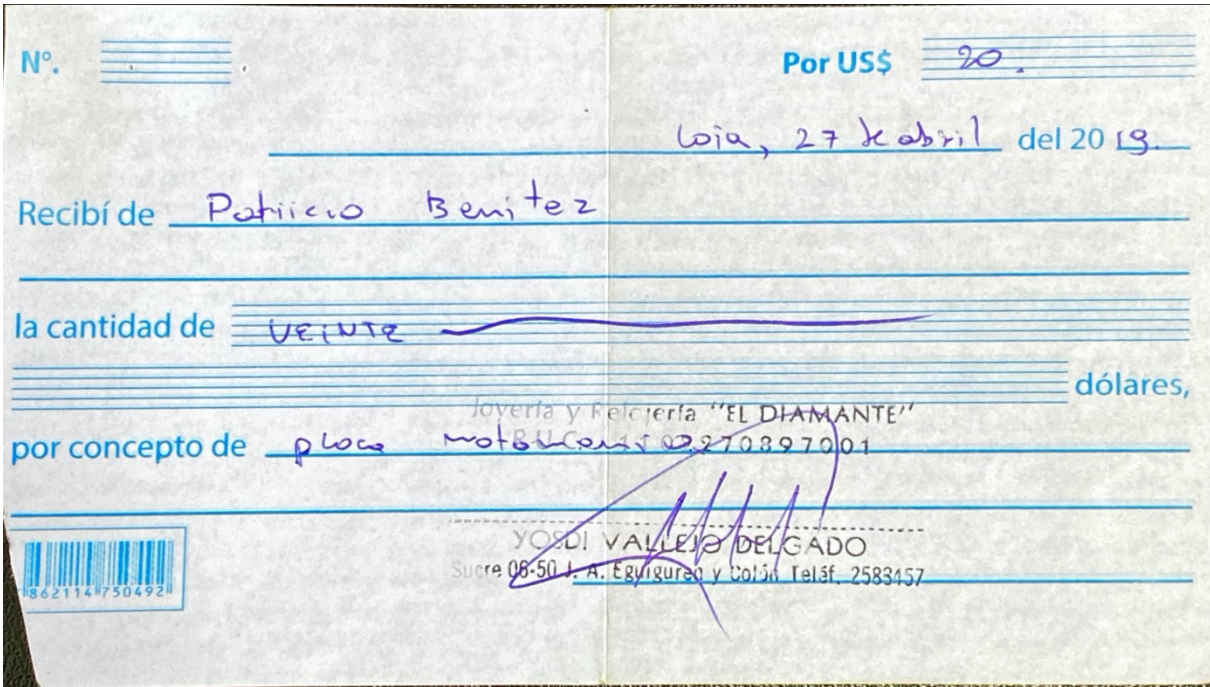 Nº. Por US$ 20.
Loja, 27 de abril del 2019
Recibí de Patricio Benitez
la cantidad de VEINTE
dólares,
Joyería y Relojería "EL DIAMANTE"
por concepto de placa
YOSDI VALLEJO DELGADO
Sucre 08-50 J. A. Eguiguren y Colón Teléf. 2583457
862114 750492